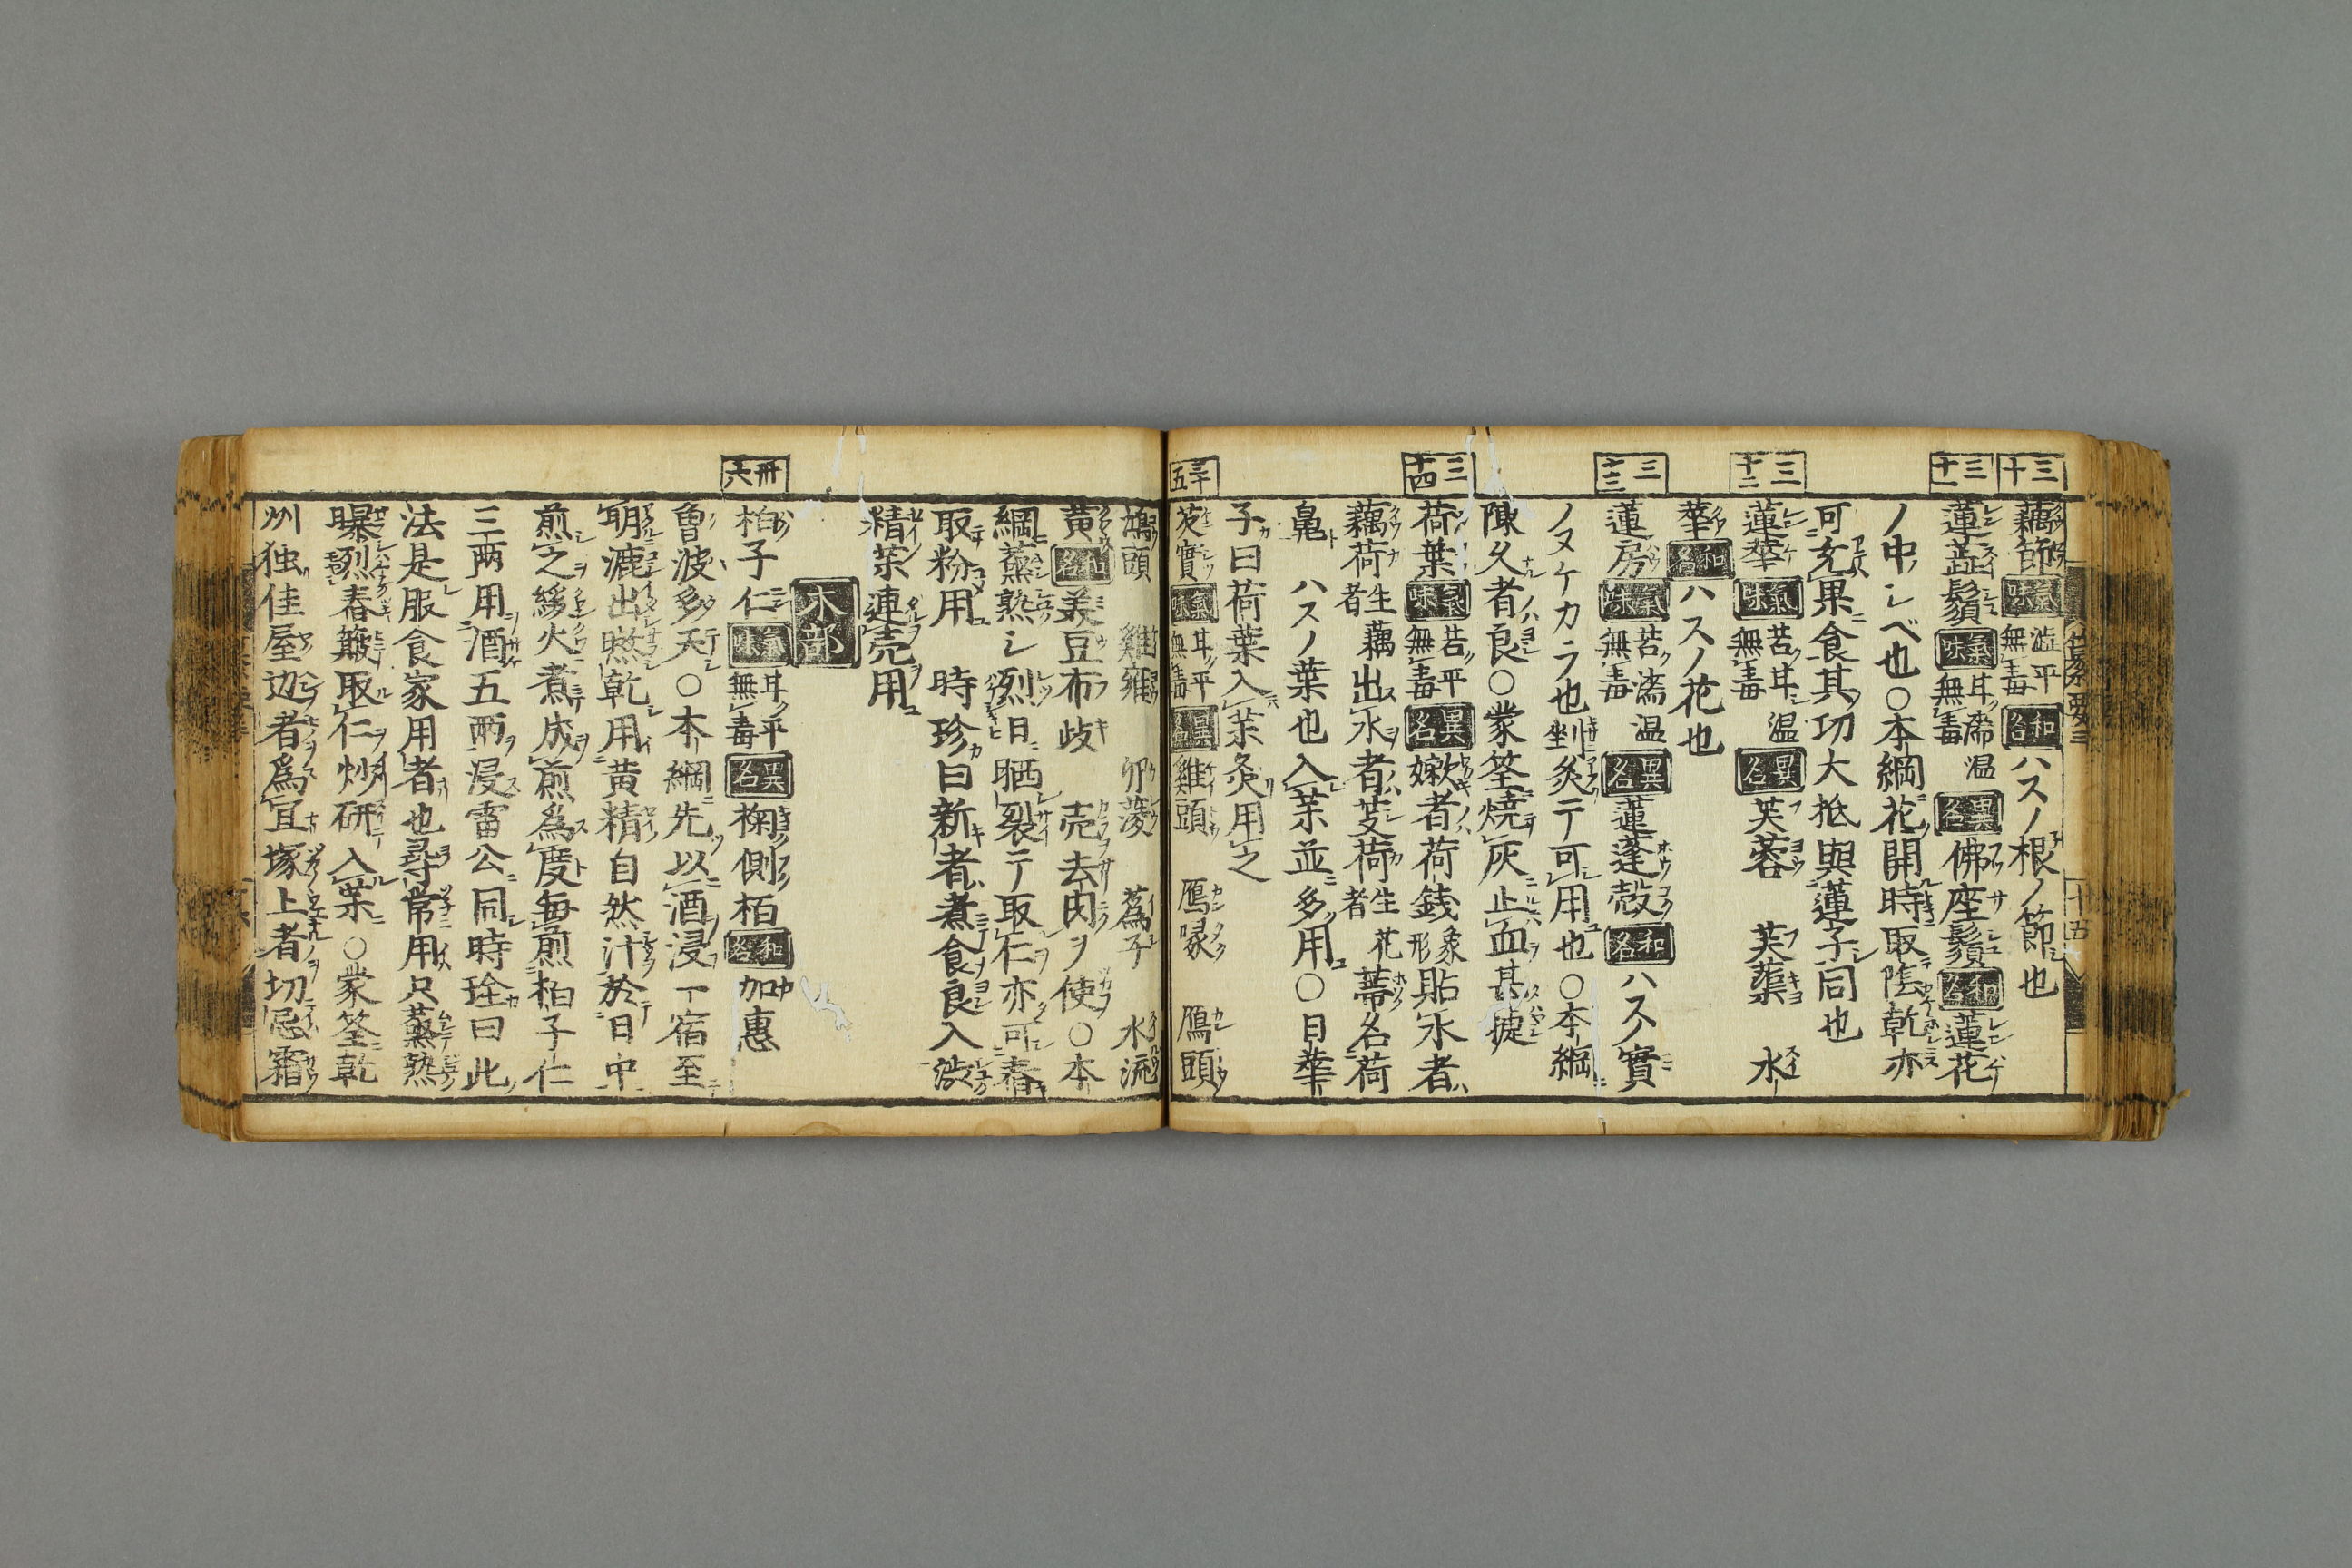 三十
藕節 氣味 澁平無毒 和名 ハスノ根ノ節也
三十一
蓮蕋鬚 氣味 甘濇温無毒 異名 佛座鬚 和名 蓮花
ノ中ノシベ也○本綱花開時取陰乾亦
可充果食其功大抵與蓮子同也
三十二
蓮華 氣味 苦甘温無毒 異名 芙蓉 芙蕖 水
華 和名 ハスノ花也
三十三
蓮房 氣味 苦濇温無毒 異名 蓮蓬殻 和名 ハスノ實
ノヌケカラ也剉炙テ可用也○本綱
陳久者良○蒙筌燒灰止血甚捷
三十四
荷葉 氣味 苦平無毒 異名 嫩者荷銭象形貼水者
藕荷生藕者出水者芰荷生花者蔕名荷
鼻 ハスノ葉也入茶並多用○日華
子曰荷葉入茶炙用之
三十五
芡實 氣味 甘平無毒 異名 雞頭 鴈喙 鴈頭
鴻頭 雞雍 卯蔆 蒍子 水流
黄 和名 美豆布岐 売去肉ヲ使○本
綱蒸熟シ烈日晒裂テ取仁亦可舂
取粉用 時珍曰新者煮食良入渋
精茶連売用
木部
卅六
栢子仁 氣味 甘平無毒 異名 椈側栢 和名 加惠
魯波多天○本綱先以酒浸一宿至
明漉出㬠乾用黄精自然汁於日中
煎之緩火煮成煎為度毎煎柏子仁
三両用酒五両浸雷公同時珍曰此
法是服食家用者也尋常用只蒸熟
曝烈舂簸取仁炒研入薬○蒙筌乾
州独佳屋辺者為宜塚上者切忌霜